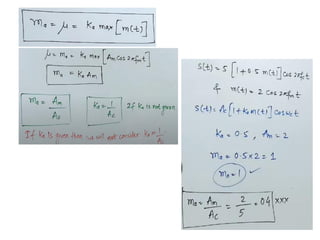 mₐ = μ = Kₐ max [m(t)]
μ = mₐ = Kₐ max [Aₘ Cos 2πfₘt]
mₐ = Kₐ Aₘ
mₐ = Aₘ / A꜀
Kₐ = 1 / A꜀ If Ka is not given
If Ka is given then we will not consider Ka = 1/A꜀
S(t) = 5 [1 + 0.5 m(t)] Cos 2πf꜀t
& m(t) = 2 Cos 2πfₘt
S(t) = A꜀ [1 + Kₐ m(t)] Cos ω꜀t
Kₐ = 0.5, Aₘ = 2
mₐ = 0.5 × 2 = 1
mₐ = 1 ✓
mₐ = Aₘ / A꜀ = 2 / 5 = 0.4 xxx